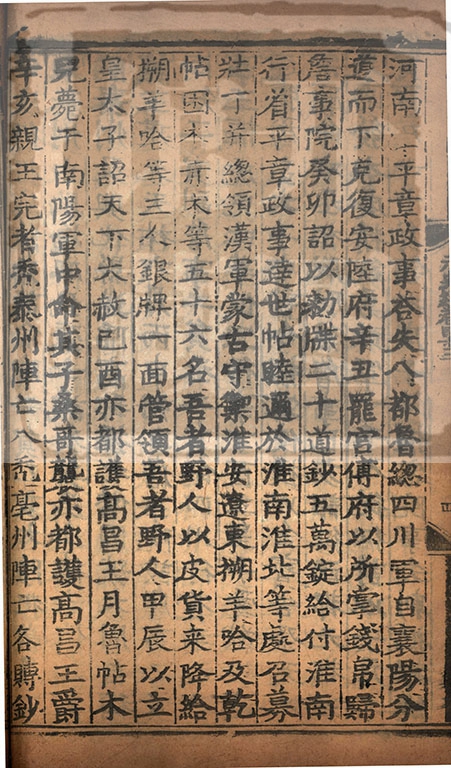 河南 平章政事荅失八都魯總四川軍自襄陽分
道而下克復安陸府辛丑罷宫傅府以所掌錢帛歸
詹事院癸卯詔以勑牒二十道鈔五萬錠給付淮南
行省平章政事逹世帖睦邇於淮南淮北等處召募
壮丁并總領漢軍蒙古守禦淮安遼東搠羊哈及乾
帖困木赤术等五十六名吾者野人以皮貨来降給
搠羊哈等三人銀牌一面管領吾者野人甲辰以立
皇太子詔天下大赦己酉亦都護髙昌王月魯帖木
兒薨于南陽軍中命其子桑哥襲亦都護髙昌王爵
辛亥親王完者秃泰州陣亡八秃亳州陣亡各賻鈔
四